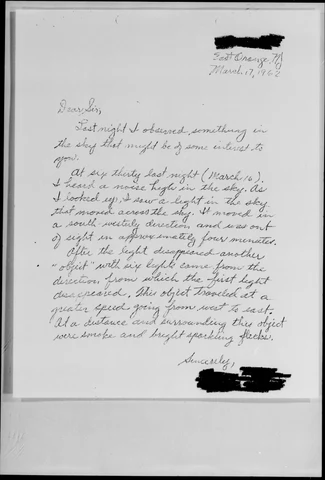 East Orange, NJ
March 17, 1962
Dear Sir,
Last night I observed something in
the sky that might be of some interest to
you.
At six thirty last night (March 16),
I heard a noise high in the sky. As
I looked up, I saw a light in the sky
that moved across the sky. It moved in
a south westerly direction and was out
of sight in approximately four minutes.
After the light disappeared another
"object" with six lights came from the
direction from which the first light
disappeared. This object traveled at a
greater speed going from west to east.
At a distance and surrounding this object
were smoke and bright sparkling flecks.
Sincerely,